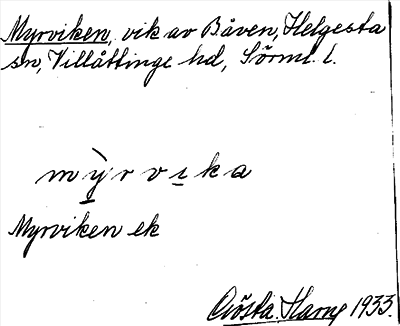 Myrviken, vik av Båven, Helgesta
sn, Villåttinge hd, Sörml. l.
mỳrvıka
Myrviken ek
Gösta Harry 1933.